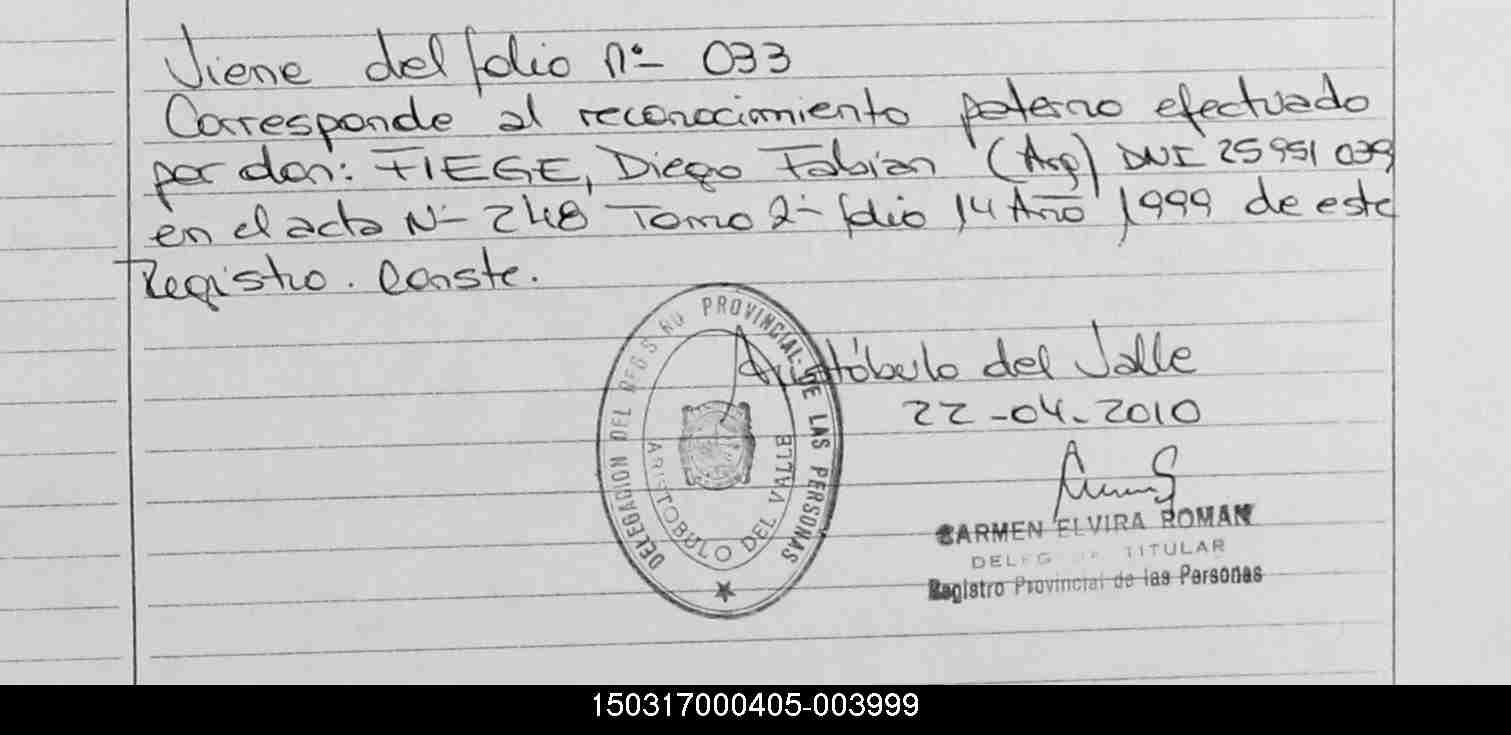 Viene del folio nº 033
Corresponde al reconocimiento paterno efectuado
por don: FIEGE, Diego Fabian (Arg) DNI 25951039
en el acta Nº 248 Tomo 2º folio 14 Año 1999 de este
Registro. Conste.
DELEGACION DEL REGISTRO PROVINCIAL DE LAS PERSONAS
ARISTOBULO DEL VALLE
Aristóbulo del Valle
22-04-2010
CARMEN ELVIRA ROMAN
TITULAR
Registro Provincial de las Personas
150317000405-003999